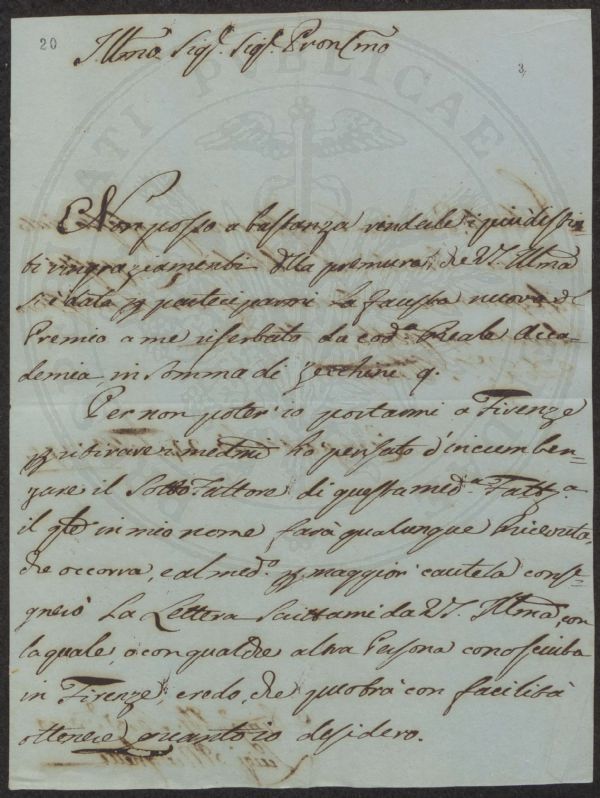 20
3
Illmo. Sig.r Sig.r Pron Cmo
Non posso a bastanza renderle i piu distin-
ti ringraziamenti della premura, che VS. Illma
si è data p partecip armi la fausta nuova di
Premio a me riserbato da cod.a Reale Acca-
demia, in somma di Zecchini 9.
Per non poter io portarmi a Firenze
p ritirare i medmi ho pensato d'incumben-
zare il Sotto Fattore di questa med.a Fatt.a
il qle in mio nome, farà qualunque ricevuta,
che occorra, e al med.o p maggior cautela conse-
gnerò la Lettera scrittami da VS. Illma, con
la quale, o con qualche altra Persona conosciuta
in Firenze, credo, che potrà con facilità
ottenere quanto io desidero.